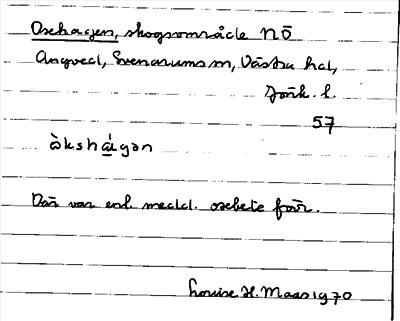 Oxehagen, skogsområde NÖ
Angved, Svenarums sn, Västra hd,
Jönk. l.
57
àkshá̱gən
Där var enl. medd. oxbete förr.
Louise H. Maas 1970